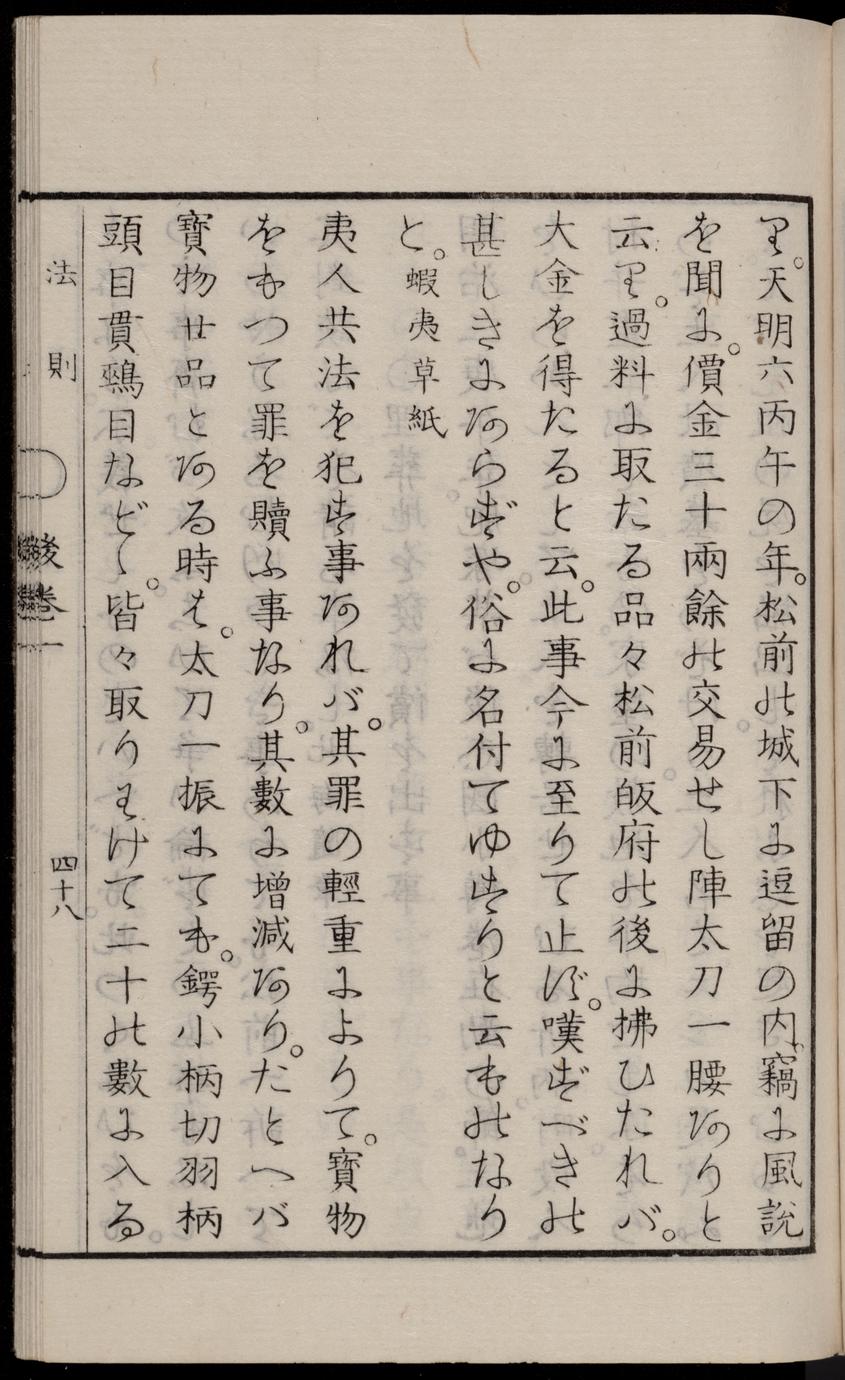 り。天明六丙午の年。松前の城下に逗留の内。竊に風説
を聞に。價金三十兩餘の交易せし陣太刀一腰ありと
云り。過料に取たる品々松前皈府の後に拂ひたれバ。
大金を得たると云。此事今に至りて止ず。嘆ずべきの
甚しきにあらずや。俗に名付てゆすりと云ものなり
と。蝦夷草紙
夷人共法を犯す事あれバ。其罪の輕重によりて。寶物
をもつて罪を贖ふ事なり。其數に増減あり。たとへバ
寶物廿品とある時は。太刀一振にても。鍔小柄切羽柄
頭目貫鵐目など、。皆々取りわけて二十の數に入る
法則
後卷一
四十八